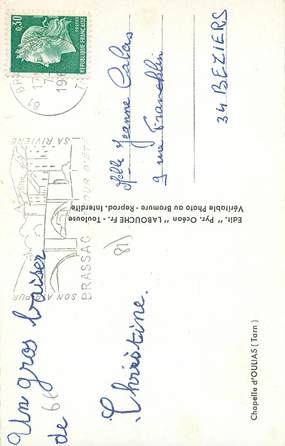 Un gros baiser
de
Christine.
66
81
Chapelle d'OULIAS (Tarn)
Edit. "Pyr. Océan" LABOUCHE Fr. - Toulouse
Véritable Photo au Bromure - Reprod. Interdite
0,30
REPUBLIQUE FRANÇAISE
BRASSAC
SON AIR PUR
SA RIVIERE
Melle Jeanne Calas
9 rue Franklin
34 BEZIERS